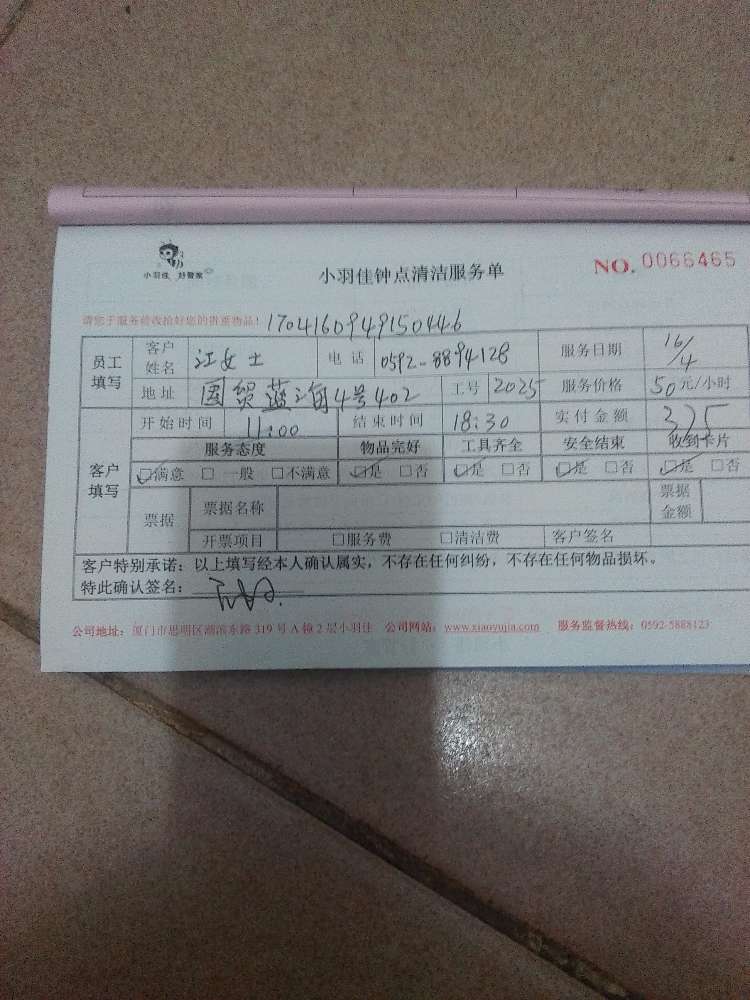 小羽佳 好管家
小羽佳钟点清洁服务单
NO. 0066465
请您于服务前收拾好您的贵重物品！ 1704160949150446
员工填写 客户姓名 江女士 电话 0592-8894128 服务日期 16/4
地址 国贸蓝海4号402 工号 2025 服务价格 50元/小时
客户填写 开始时间 11:00 结束时间 18:30 实付金额 375
服务态度 物品完好 工具齐全 安全结束 收到卡片
☑满意 □一般 □不满意 ☑是 □否 ☑是 □否 ☑是 □否 ☑是 □否
票据 票据名称 票据金额
开票项目 □服务费 □清洁费 客户签名
客户特别承诺：以上填写经本人确认属实，不存在任何纠纷，不存在任何物品损坏。
特此确认签名：
公司地址：厦门市思明区湖滨东路319号A幢2层小羽佳 公司网站：www.xiaoyujia.com 服务监督热线：0592-5888123